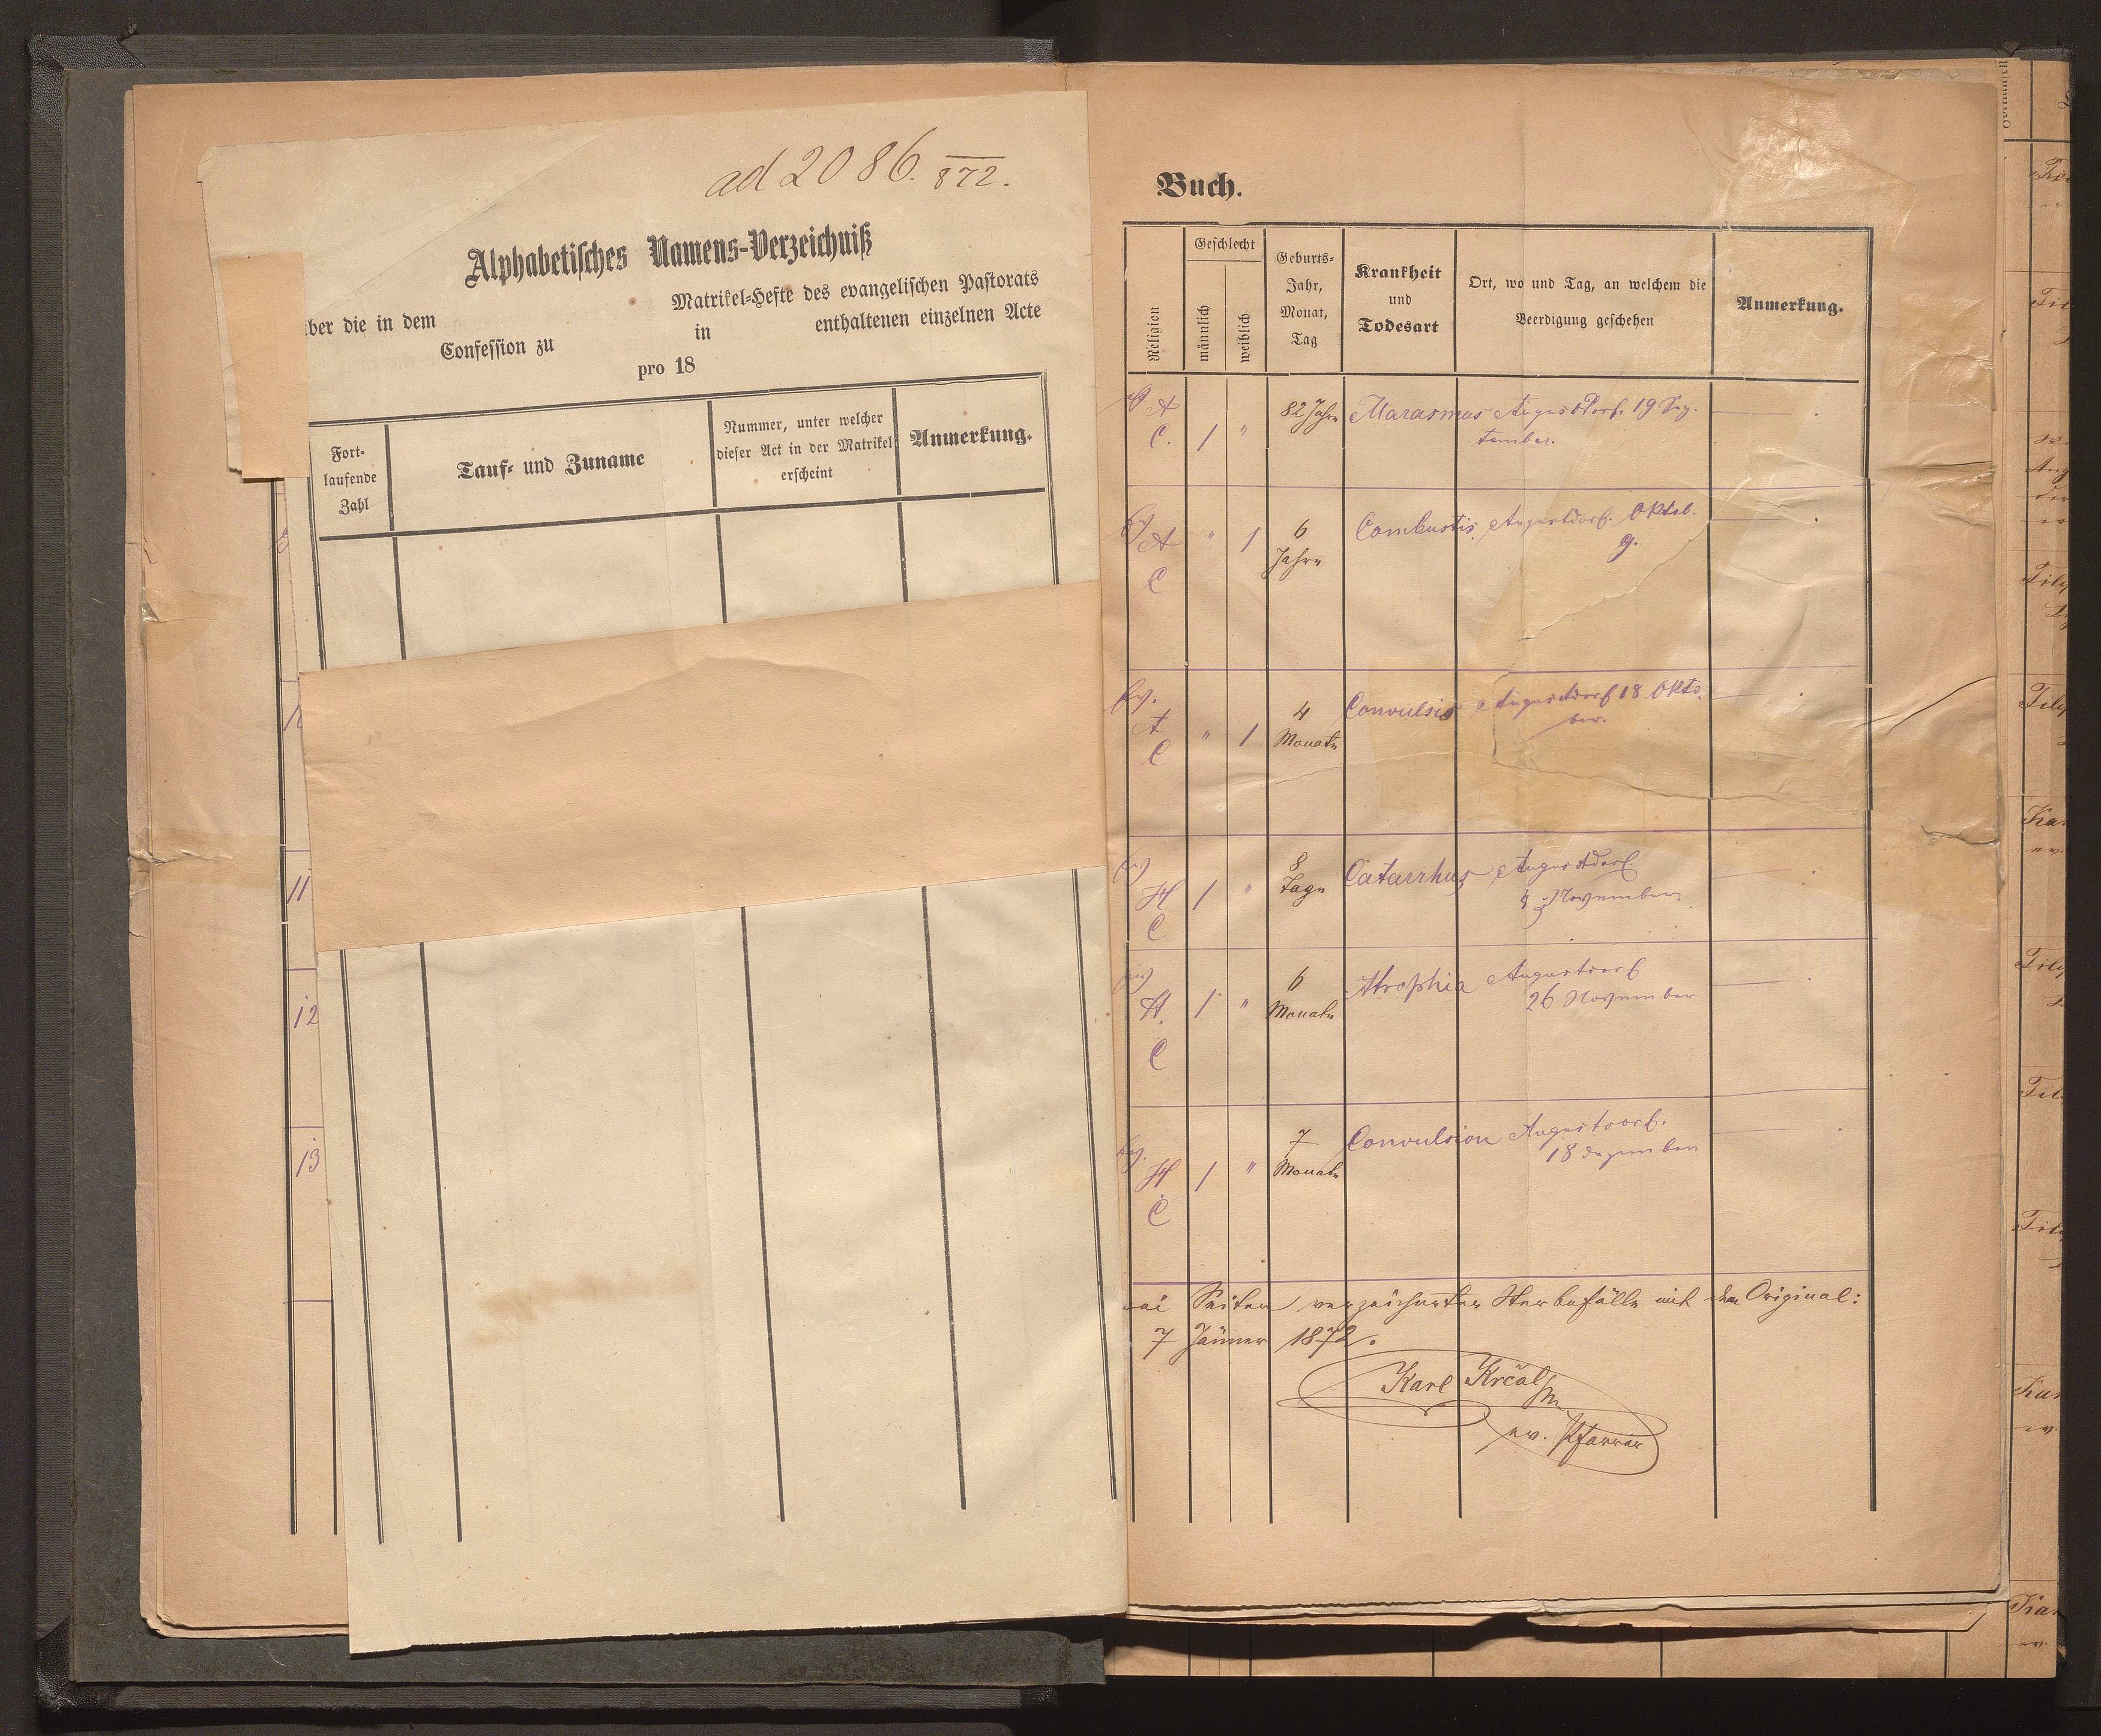 ad 2086. 872.
Alphabetisches Namens-Verzeichniß
über die in dem Matrikel-Hefte des evangelischen Pastorats
Confession zu in enthaltenen einzelnen Acte
pro 18
Fort-
laufende
Zahl
Tauf- und Zuname
Nummer, unter welcher
dieser Act in der Matrikel
erscheint
Anmerkung.
11
12
13
Buch.
Religion
Geschlecht
männlich
weiblich
Geburts-
Jahr,
Monat,
Tag
Krankheit
und
Todesart
Ort, wo und Tag, an welchem die
Beerdigung geschehen
Anmerkung.
A
C. 1 " 82 Jahre Marasmus Augustdorf. 19 Sep-
tember.
Ev A " 1 6 Combustis. Augustdorf. Oktob.
C Jahre 9.
Ev. 4 Convulsio Augustdorf 18 Okto-
A " 1 Monate ber.
C
Ev 8 Catarrhus Augustdorf
H 1 " Tage 4 November
C
Ev 6 Atrophia Augustdorf
H. 1 " Monate 26 November
C
Ev. 7 Convulsion Augustdorf.
H 1 " Monate 18 Dezember
C
Seiten verzeichneten Sterbefälle mit dem Original:
7 Jänner 1872.
Karl Krčal
ev. Pfarrer